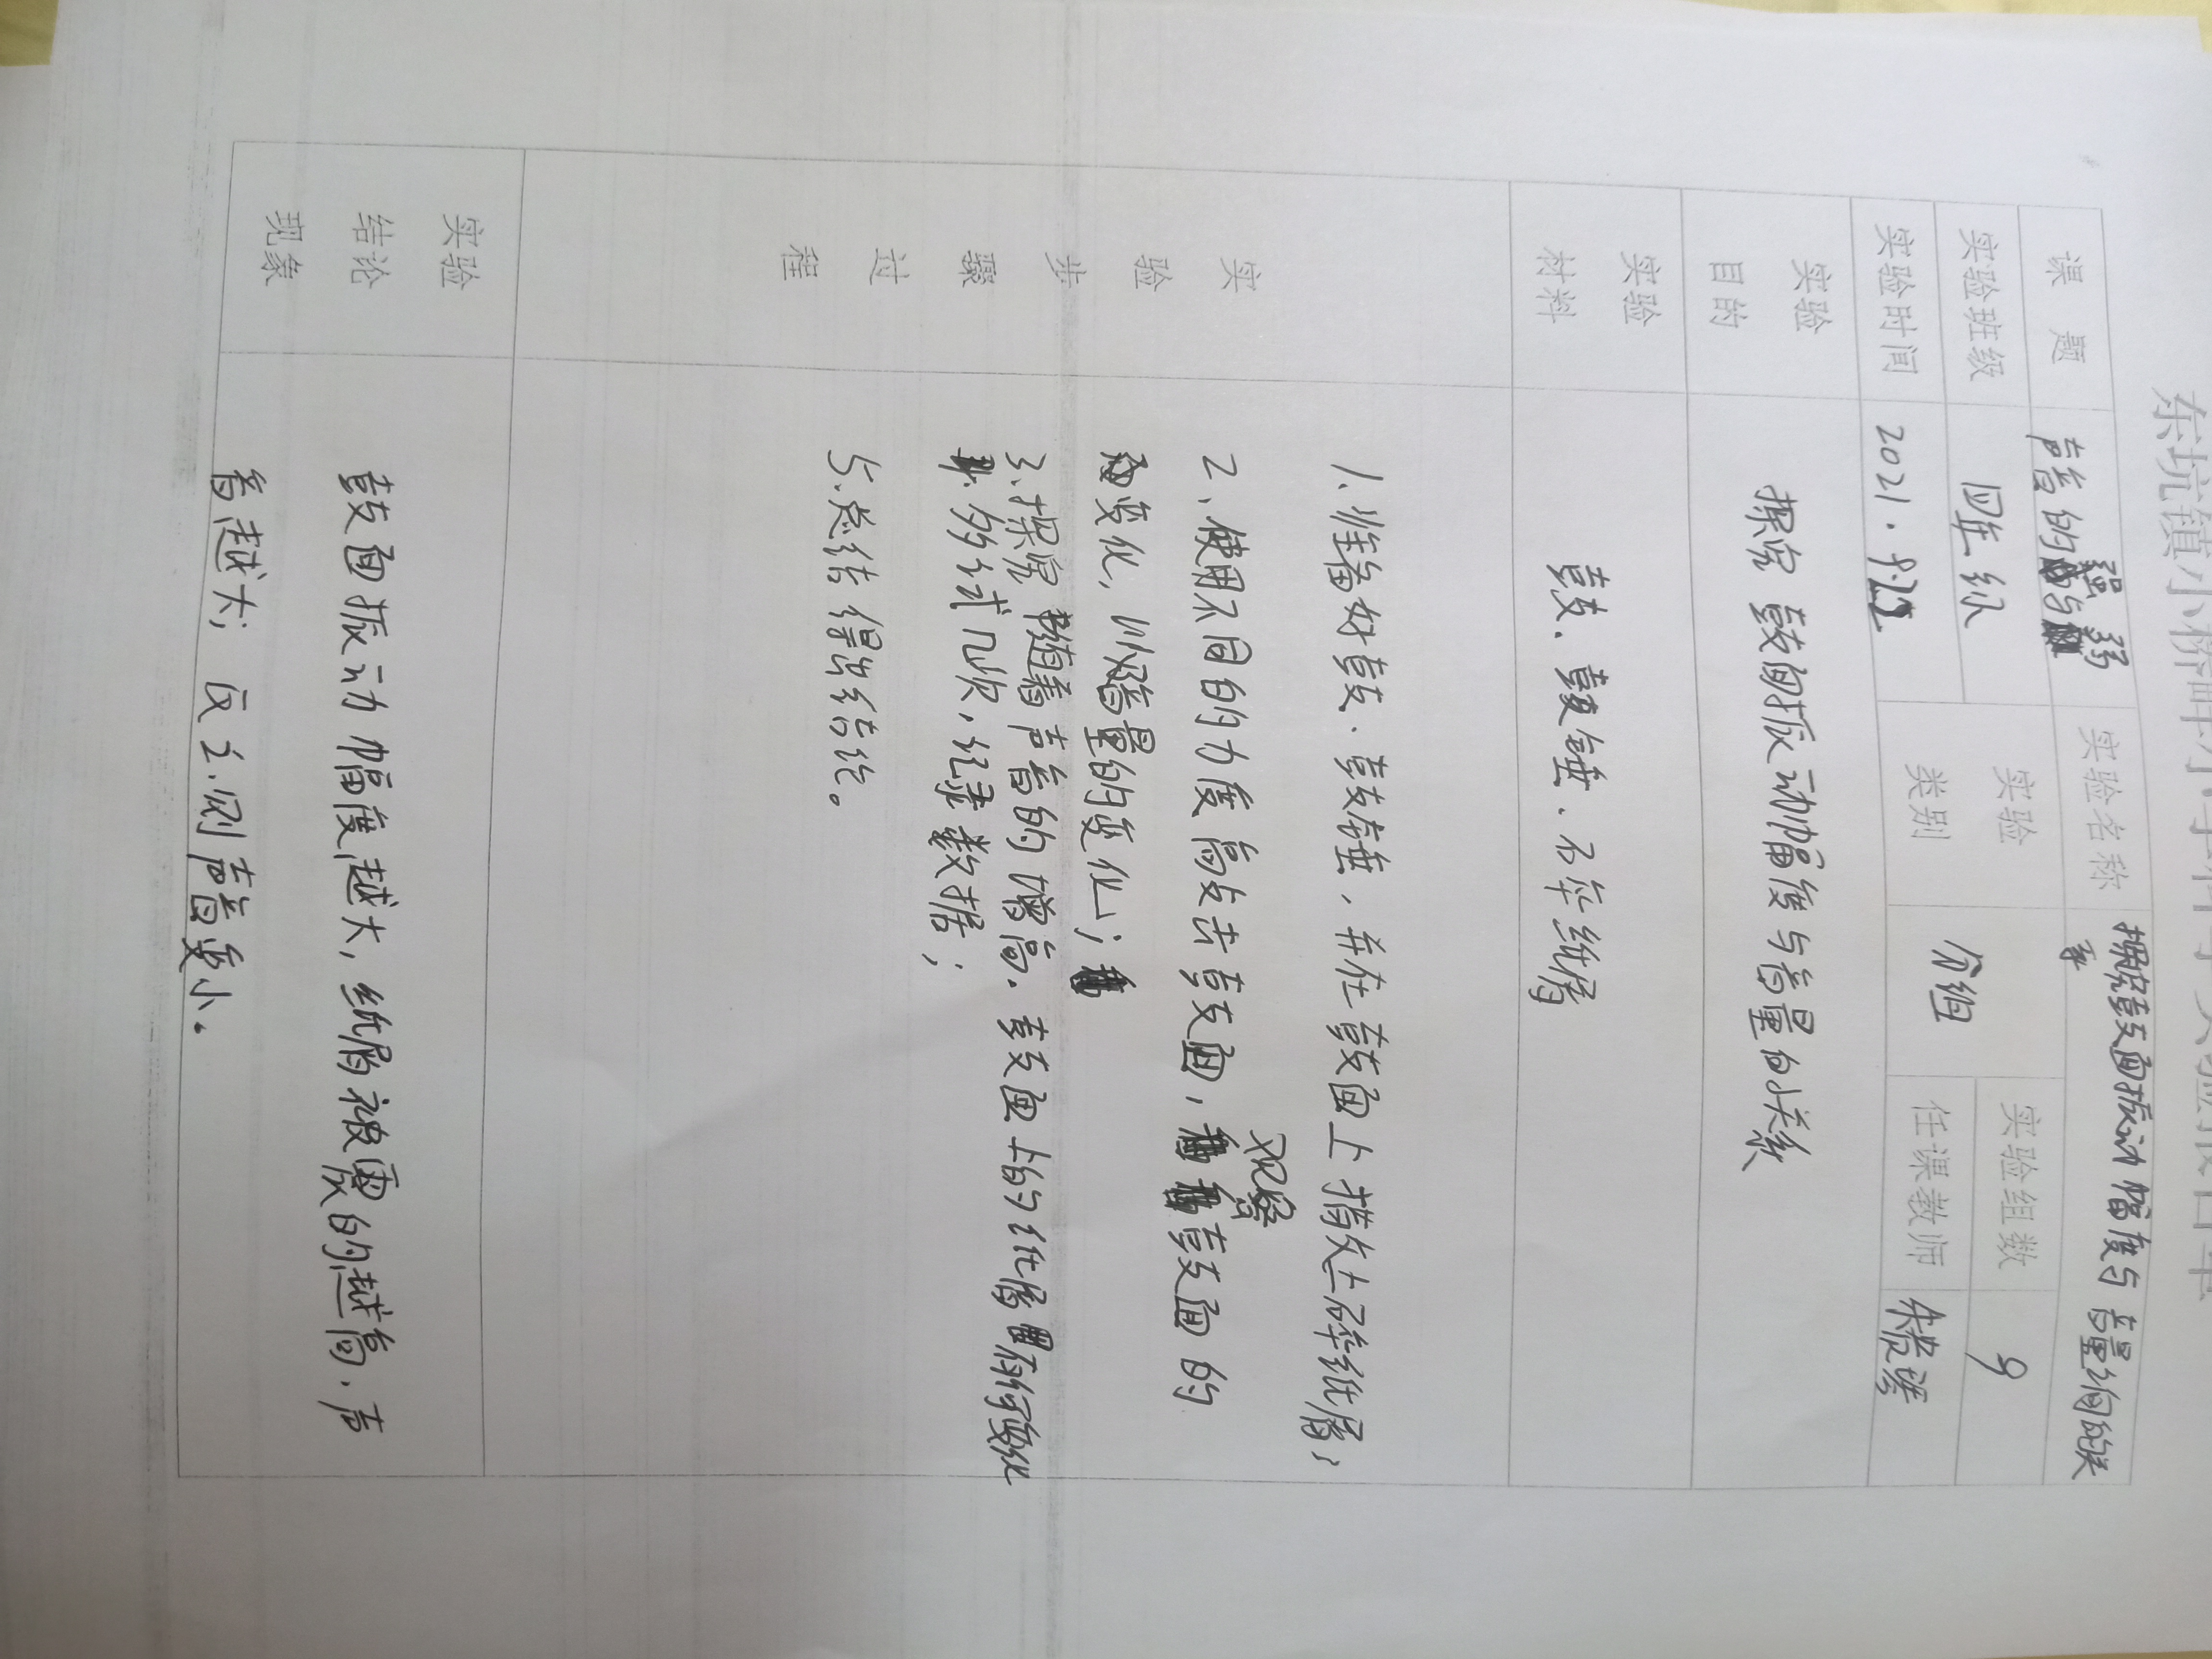 东坑镇小桥
课 题 声音的强与弱 实验名称 探究鼓面振动幅度与音量的关
系
实验班级 四年级 实验类别 分组 实验组数 9
实验时间 2021. 任课教师 朱
实验目的 探究鼓面振动幅度与音量的关系
实验材料 鼓、鼓锤、碎纸屑
实验步骤过程
1.准备好鼓、鼓锤,并在鼓面上撒上碎纸屑;
2.使用不同的力度敲击鼓面,观察鼓面的
变化,以及音量的变化;
3.探究随着声音的增高,鼓面上的纸屑有何变化
4.多试几次,记录数据;
5.总结得出结论。
实验结论现象
鼓面振动幅度越大,纸屑被震的越高,声
音越大;反之,则声音变小。